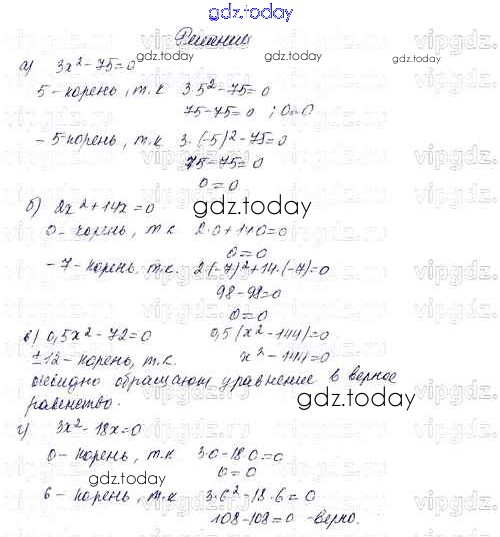 gdz.today
Решение
а) 3x² - 75 = 0
5 - корень, т.к 3·5² - 75 = 0
75 - 75 = 0 ; 0 = 0
- 5 корень, т.к 3·(-5)² - 75 = 0
75 - 75 = 0
0 = 0
б) 2x² + 14x = 0
0 - корень, т.к 2·0 + 14·0 = 0
0 = 0
- 7 - корень. т.к. 2·(-7)² + 14·(-7) = 0
98 - 98 = 0
0 = 0
в) 0,5x² - 72 = 0 0,5(x² - 144) = 0
±12 - корень, т.к. x² - 144 = 0
очевидно обращают уравнение в верное
равенство.
г) 3x² - 18x = 0
0 - корень, т.к 3·0 - 18·0 = 0
0 = 0
6 - корень, т.к 3·6² - 18·6 = 0
108 - 108 = 0 - верно.